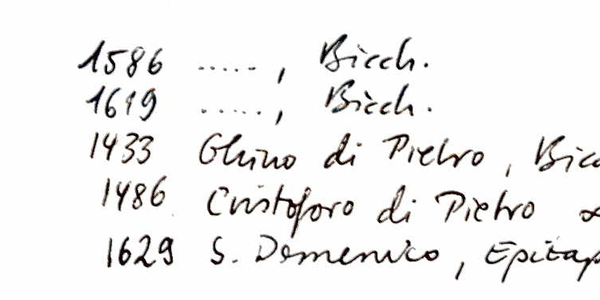 1586 ....., Bicch.
1619 ....., Bicch.
1433 Ghino di Pietro, Bicc
1486 Cristoforo di Pietro
1629 S. Domenico, Epitap